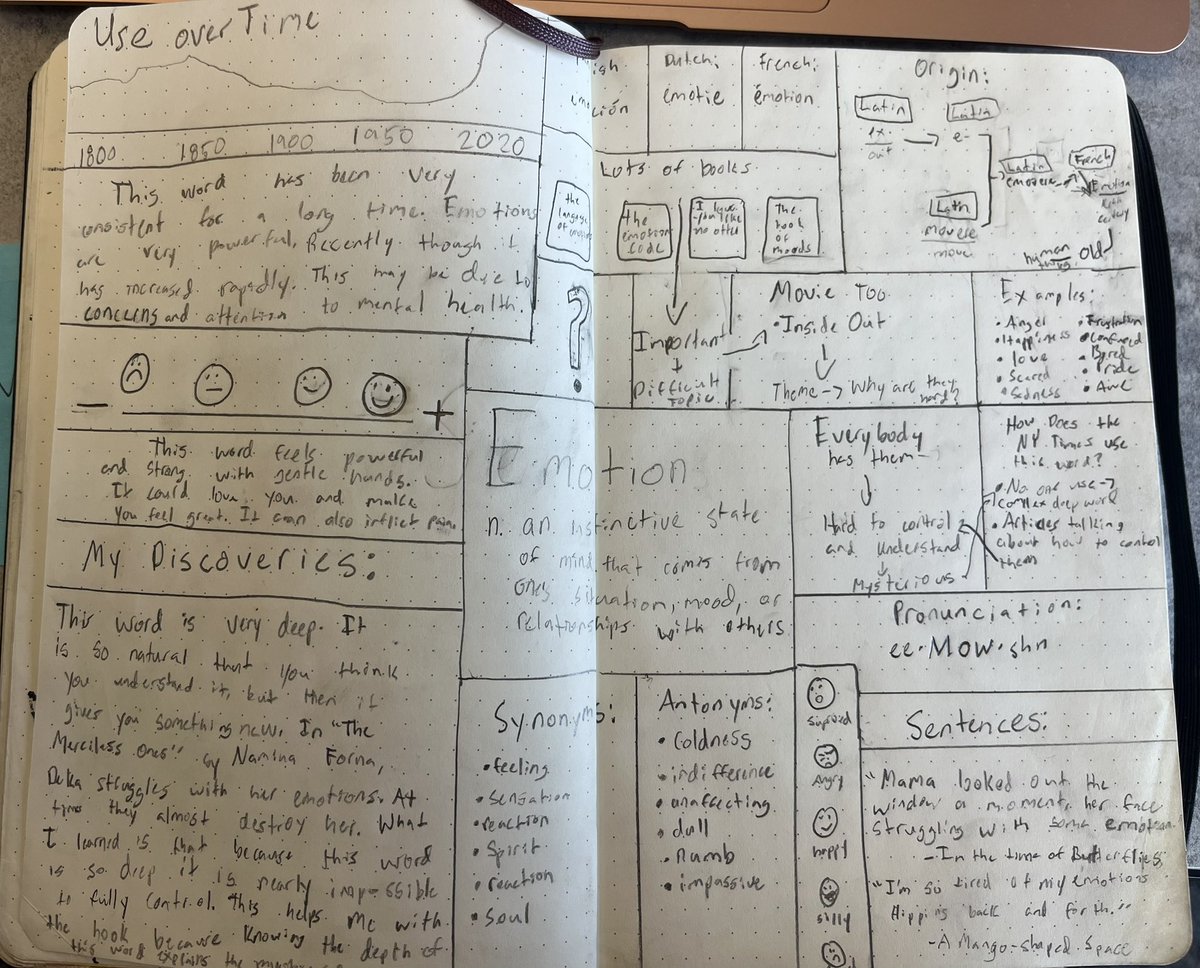 Use over Time
1800 1850 1900 1950 2020
This word has been very
consistent for a long time. Emotions
are very powerful. Recently though it
has increased rapidly. This may be due to
concerns and attention to mental health.
− +
This word feels powerful
and strong with gentle hands.
It could love you and make
you feel great. It can also inflict pain.
My Discoveries:
This word is very deep. It
is so natural that you think
you understand it, but then it
gives you something new. In "The
Merciless Ones" by Namina Forna,
Deka struggles with her emotions. At
time they almost destroy her. What
I learned is that because this word
is so deep it is nearly impossible
to fully control. This helps me with
the book because knowing the depth of
this word explains the
ish
ción
Dutch:
emotie
French:
émotion
Lots of books
the
language
of
the
emotion
code
I love
you like
no other
The
book
of
moods
?
Important
Difficult
Topic
Movie Too
• Inside Out
Theme → Why are they
hard?
Origin:
Latin
ex
out
→ e-
Latin
Latin
movere
move
Latin
emovere
French
Emotion
century
human
things
Old
Examples:
• Anger
• Happiness
• love
• Scared
• Sadness
• Frustration
• Confused
• Bored
• Pride
• Awe
Emotion
n. an instinctive state
of mind that comes from
ones situation, mood, or
relationships with others
Everybody
has them
Hard to control
and understand
Mysterious
How Does the
NY Times use
this word?
• No one use →
complex deep word
• Articles talking
about how to control
them
Pronunciation:
ee·Mow·shn
Synonyms:
• feeling
• sensation
• reaction
• Spirit
• reaction
• soul
Antonyms:
• Coldness
• indifference
• unaffecting
• dull
• numb
• impassive
Suprised
Angry
happy
silly
Sentences:
"Mama looked out the
window a moment, her face
struggling with some emotion
- In the time of Butterflies
"I'm so tired of my emotions
flipping back and forth."
- A Mango-shaped Space